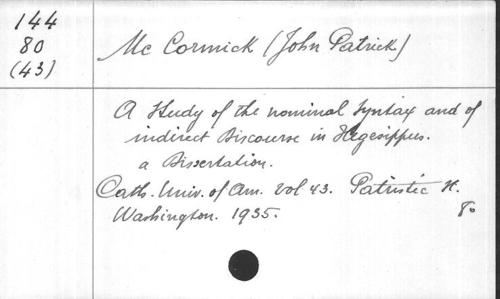 144
80
(43)
Mc Cormick (John Patrick)
A Study of the nominal syntax and of
indirect Discourse in Hegesippus.
a Dissertation.
Cath. Univ. of Am. Vol 43. Patristic
Washington. 1935. 8o